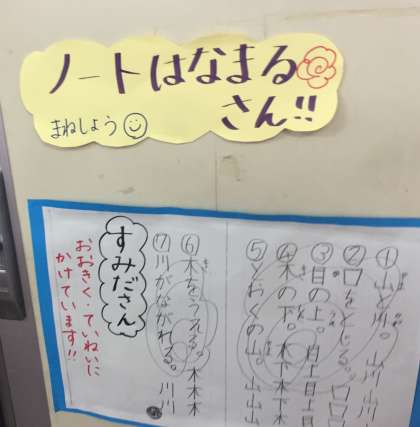 ノートはなまる
さん!!
まねしよう
①山と川。山川山川
②口をとじる。口口
③目の上。目上目上
④木の下。木下木下木
⑤とおくの山。山山山
⑥木をうえる。木木木
⑦川がながれる。川川
すみださん
おおきく、ていねいに
かけています!!